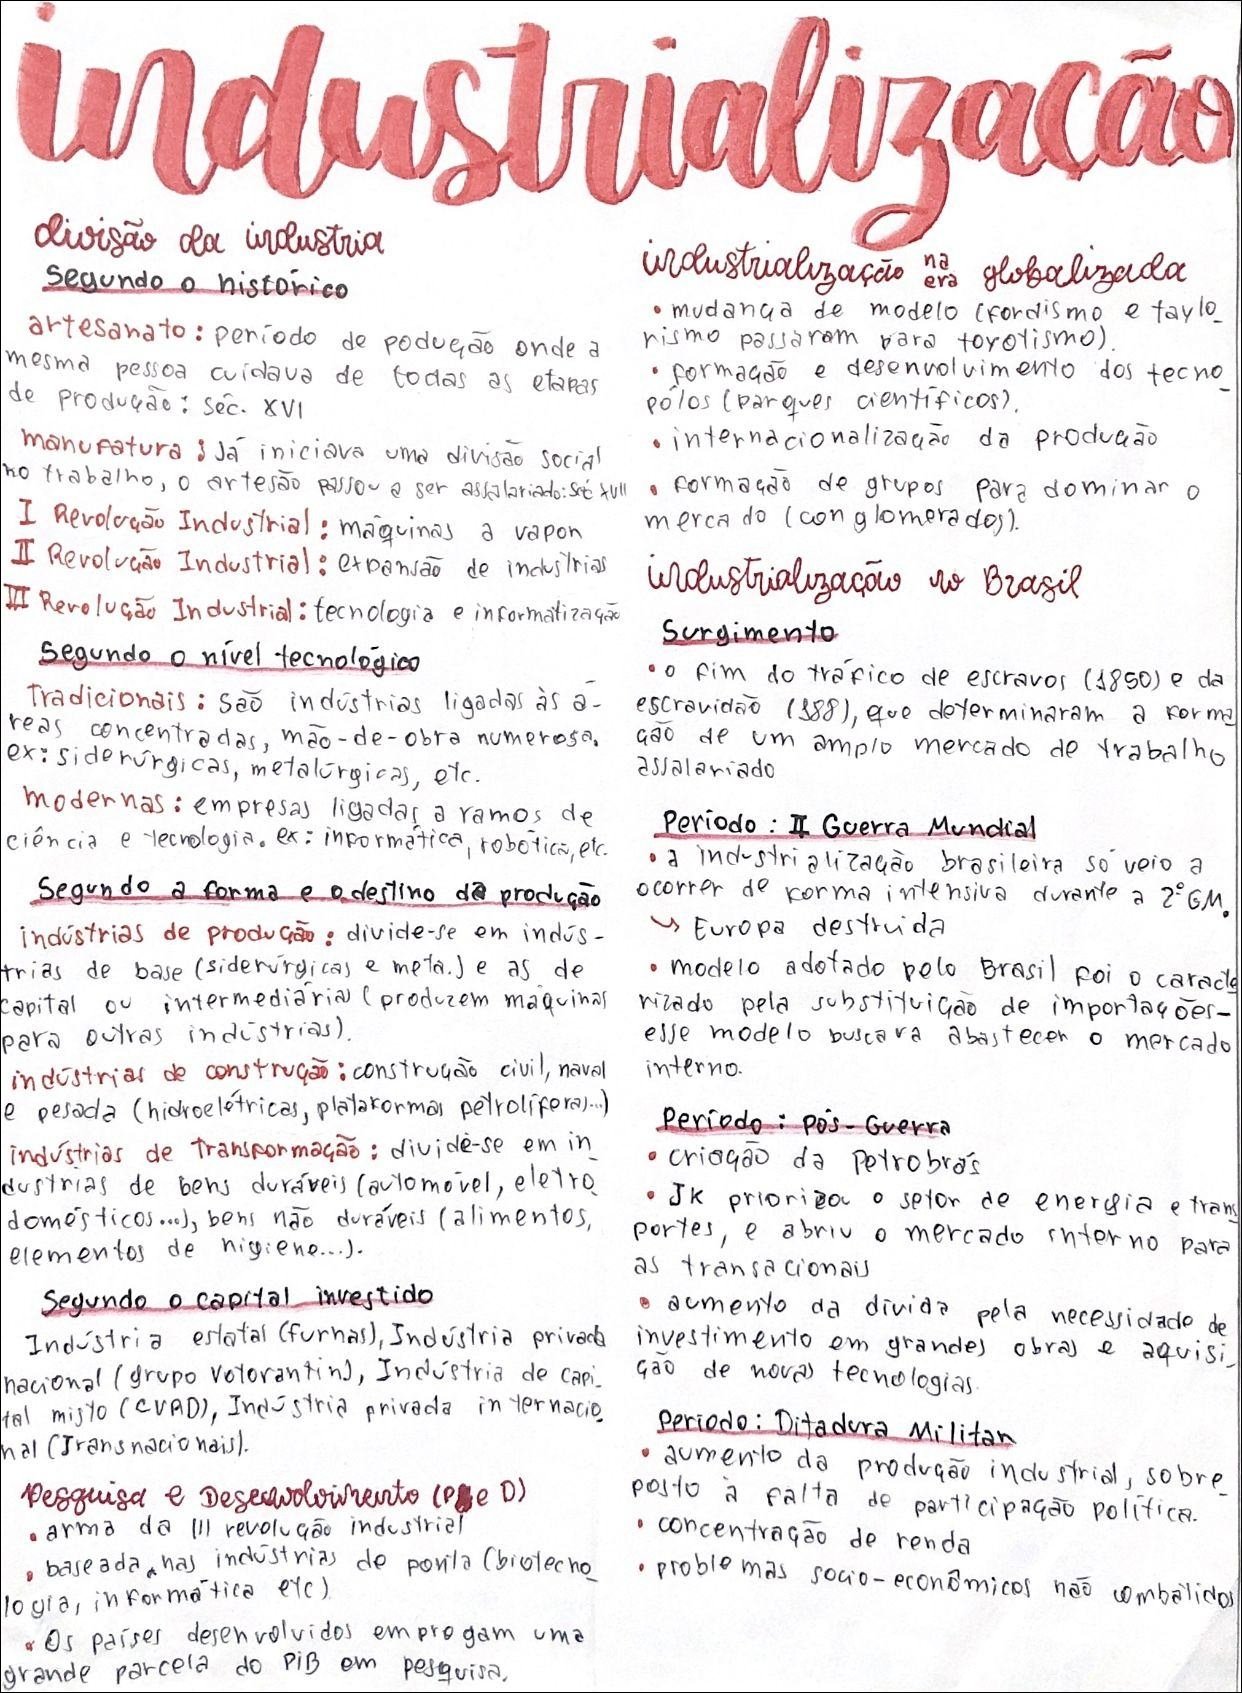 industrialização
divisão da industria
Segundo o histórico
artesanato: período de podução onde a
mesma pessoa cuidava de todas as etapas
de produção: séc. XVI
manufatura: Já iniciava uma divisão social
no trabalho, o artesão passou a ser assalariado: séc XVII
I Revolução Industrial: máquinas a vapor
II Revolução Industrial: expansão de indústrias
III Revolução Industrial: tecnologia e informatização
Segundo o nível tecnológico
Tradicionais: São indústrias ligadas às á-
reas concentradas, mão-de-obra numerosa.
ex: siderúrgicas, metalúrgicas, etc.
modernas: empresas ligadas a ramos de
ciência e tecnologia. ex: informática, robótica, etc.
Segundo a forma e o destino da produção
indústrias de produção: divide-se em indús-
trias de base (siderúrgicas e meta.) e as de
capital ou intermediárias (produzem máquinas
para outras indústrias).
indústrias de construção: construção civil, naval
e pesada (hidroelétricas, plataformas petrolíferas...)
indústrias de Transformação: divide-se em in_
dustrias de bens duráveis (automóvel, eletro_
domésticos...), bens não duráveis (alimentos,
elementos de higiene...).
Segundo o capital investido
Indústria estatal (furnas), Indústria privada
nacional (grupo Votorantin), Indústria de capi_
tal misto (CVRD), Indústria privada internacio_
nal (Transnacionais).
Pesquisa e Desenvolvimento (P e D)
• arma da III revolução industrial
• baseada nas indústrias de ponta (biotecno_
logia, informática etc)
• Os países desenvolvidos empregam uma
grande parcela do PIB em pesquisa.
industrialização na era globalizada
• mudança de modelo (fordismo e taylo_
rismo passaram para toyotismo).
• formação e desenvolvimento dos tecno_
pólos (parques científicos).
• internacionalização da produção
• formação de grupos para dominar o
mercado (conglomerados).
industrialização no Brasil
Surgimento
• o fim do tráfico de escravos (1850) e da
escravidão (188), que determinaram a forma
ção de um amplo mercado de trabalho
assalariado
Período: II Guerra Mundial
• a industrialização brasileira só veio a
ocorrer de forma intensiva durante a 2°GM.
↳ Europa destruida
• modelo adotado pelo Brasil foi o caracte
rizado pela substituição de importações-
esse modelo buscava abastecer o mercado
interno.
Período: pós-Guerra
• criação da Petrobrás
• JK priorizou o setor de energia e trans
portes, e abriu o mercado interno para
as transacionais
• aumento da dívida pela necessidade de
investimento em grandes obras e aquisi_
ção de novas tecnologias.
Período: Ditadura Militar
• aumento da produção industrial, sobre_
posto à falta de participação política.
• concentração de renda
• problemas socio-econômicos não combatidos